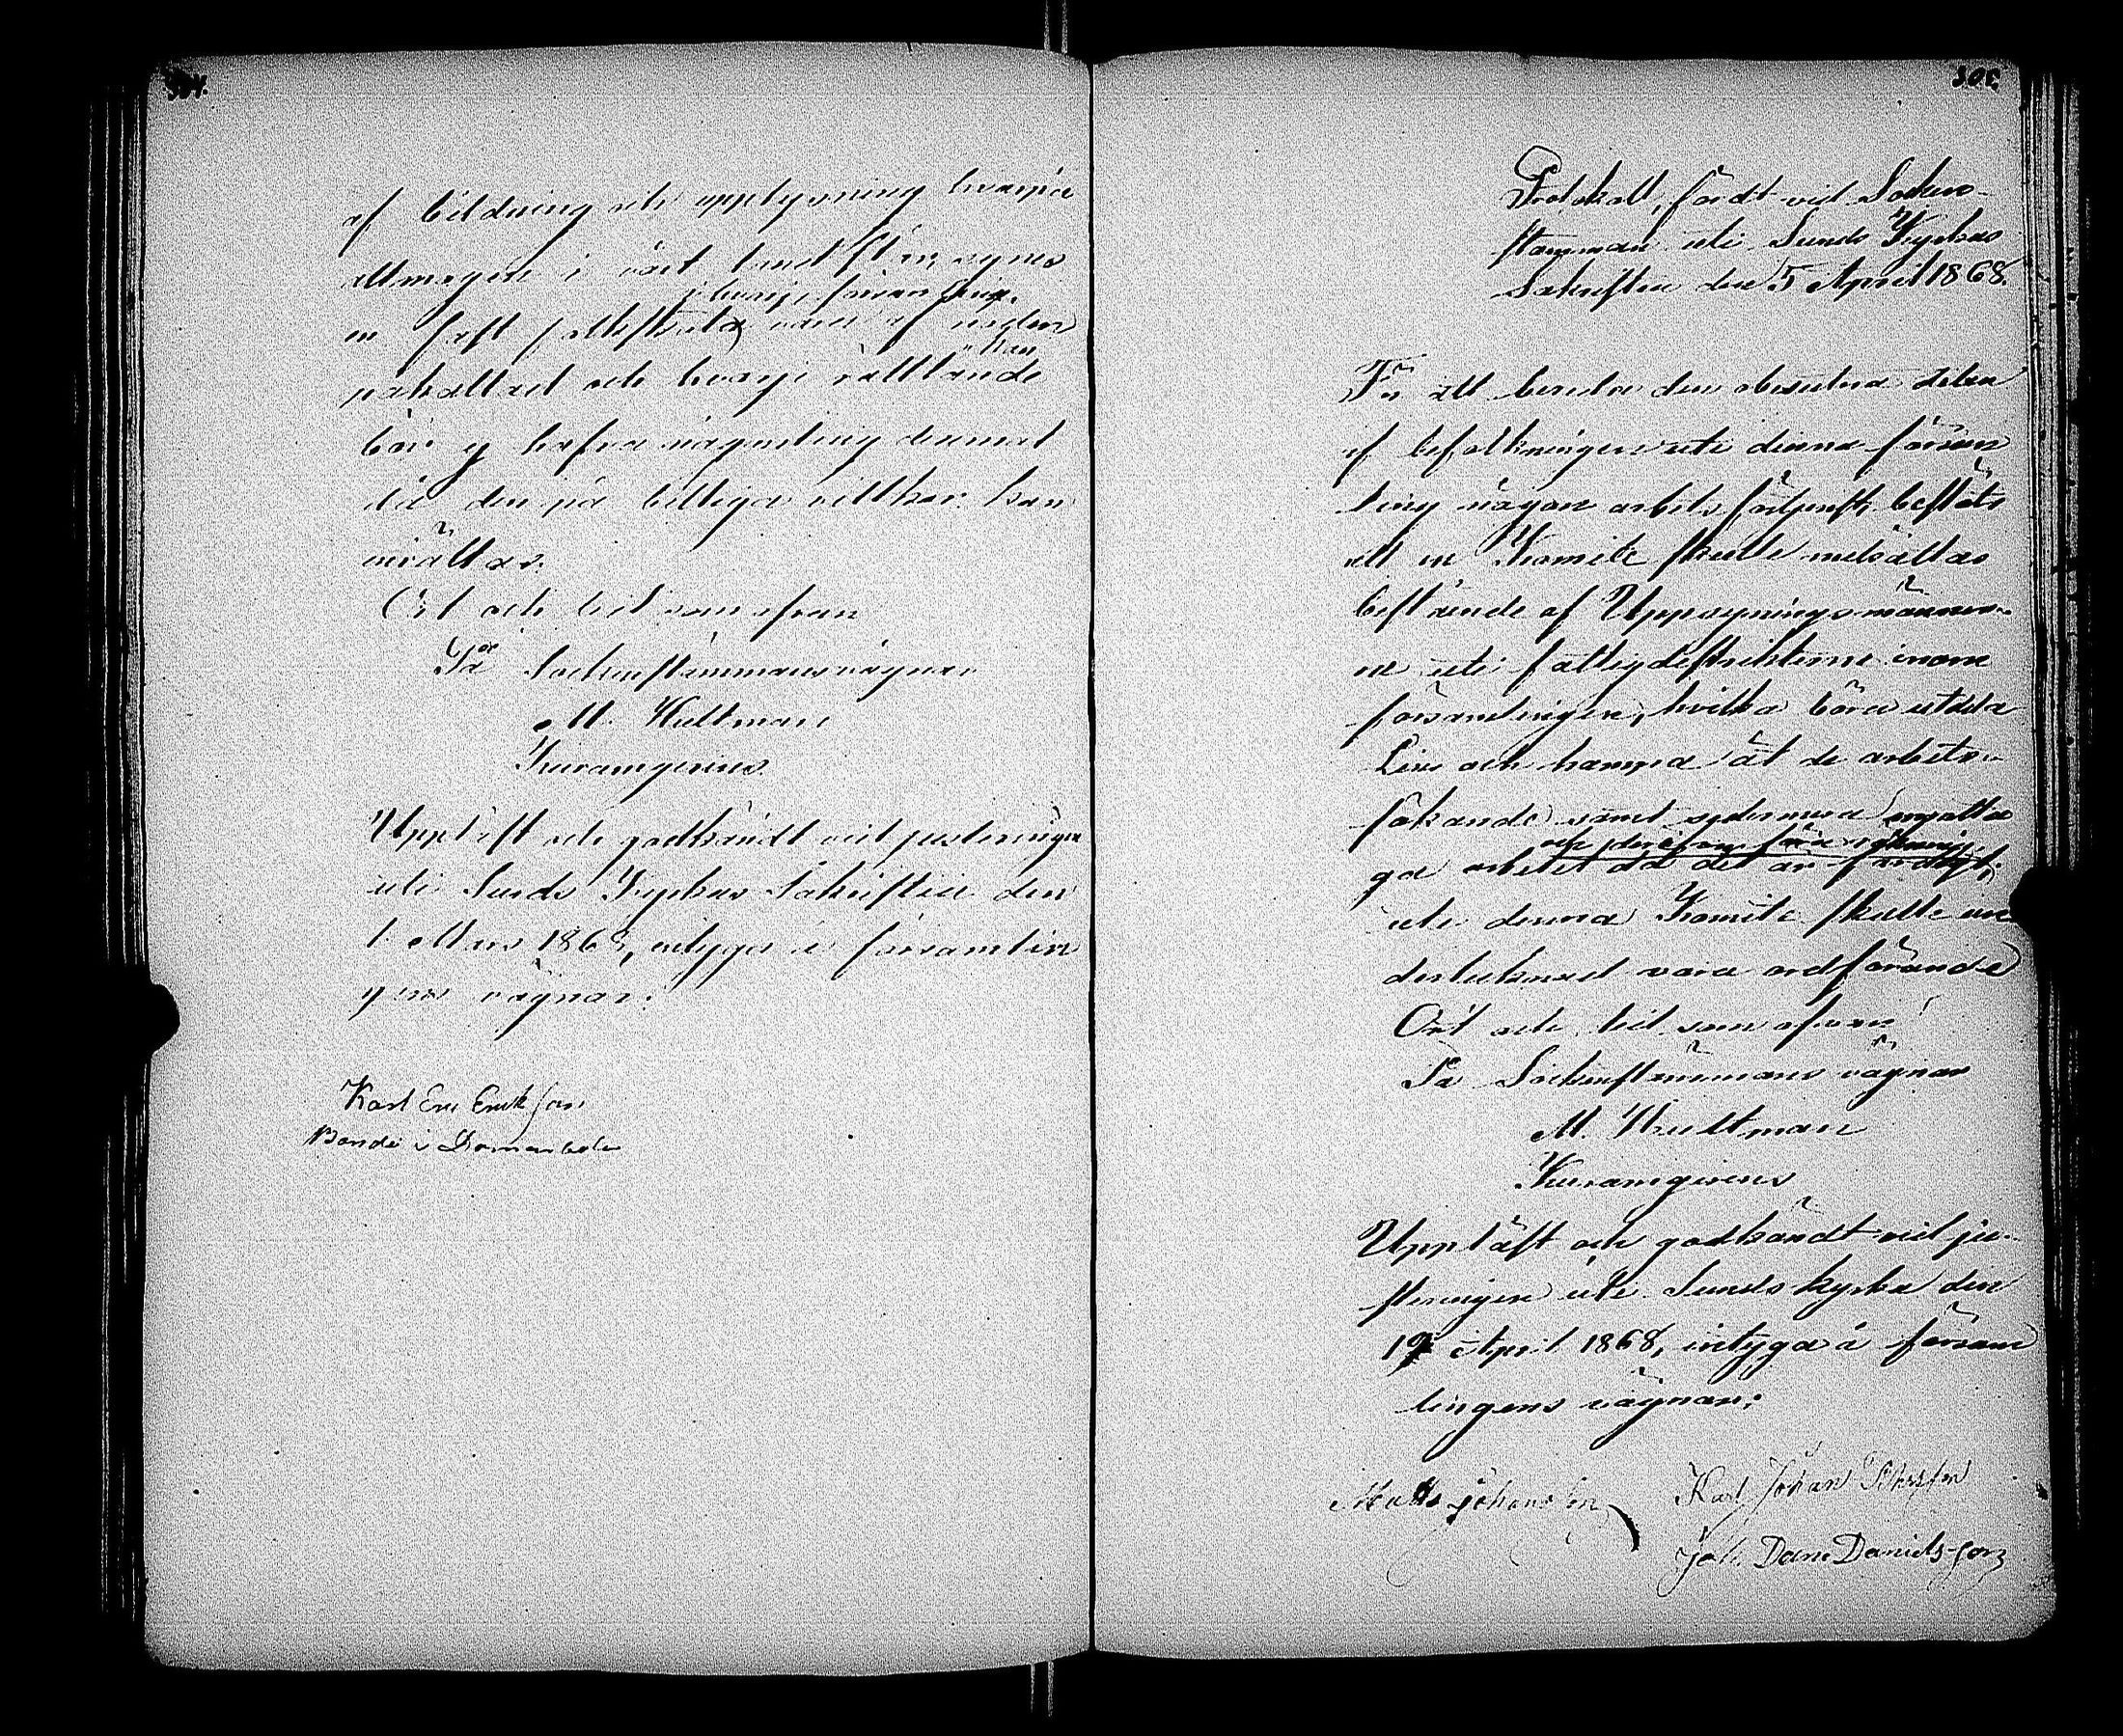 304.
af bildning och upplysning hvarpå
allmogen i vårt land står, synes
i hvarje församling
en fast folkskola vara af nöden
man
påkallad och hvarje rättänkande
bör ej hafva någonting deremot
då den på billiga villkor kan
inrättas.
Ort och tid som ofvan
På Sockenstämmans vägnar
M. Hultman
Kuramgerens.
Uppläst och godkändt vid justeringen
uti Sunds Kyrkas Sakristia den
1. Mars 1868, intyga å församlin
gens vägnar:
Karl Eric Erikson
Bonde i Domarböle
305.
Protokoll, fördt vid Socken-
stämman uti Sunds Kyrkas
Sakristia den 5 April 1868.
För att bereda den obesutna delen
af befolkningen uti denna försam
ling någon arbetsförtjenst, beslöts
att en Komité skulle nedsättas
bestående af Uppsyningsmänner-
ne uti fattigdistrikterne inom
församlingen, hvilka böra utdela
Lin och hampa åt de arbets-
sökande samt sedermera motta
och derefter
ga arbetet då det är färdigt;
uti denna Komité skulle un
dertecknad vara ordförande
Ort och tid som ofvan
På Sockenstämmans vägnar
M. Hultman
Kuramgerens
Uppläst och godkändt vid ju-
steringen uti Sunds kyrka den
19 April 1868, intyga å försam
lingens vägnar:
Matts Johansson Karl Johan
Joh. Dan. Danielsson